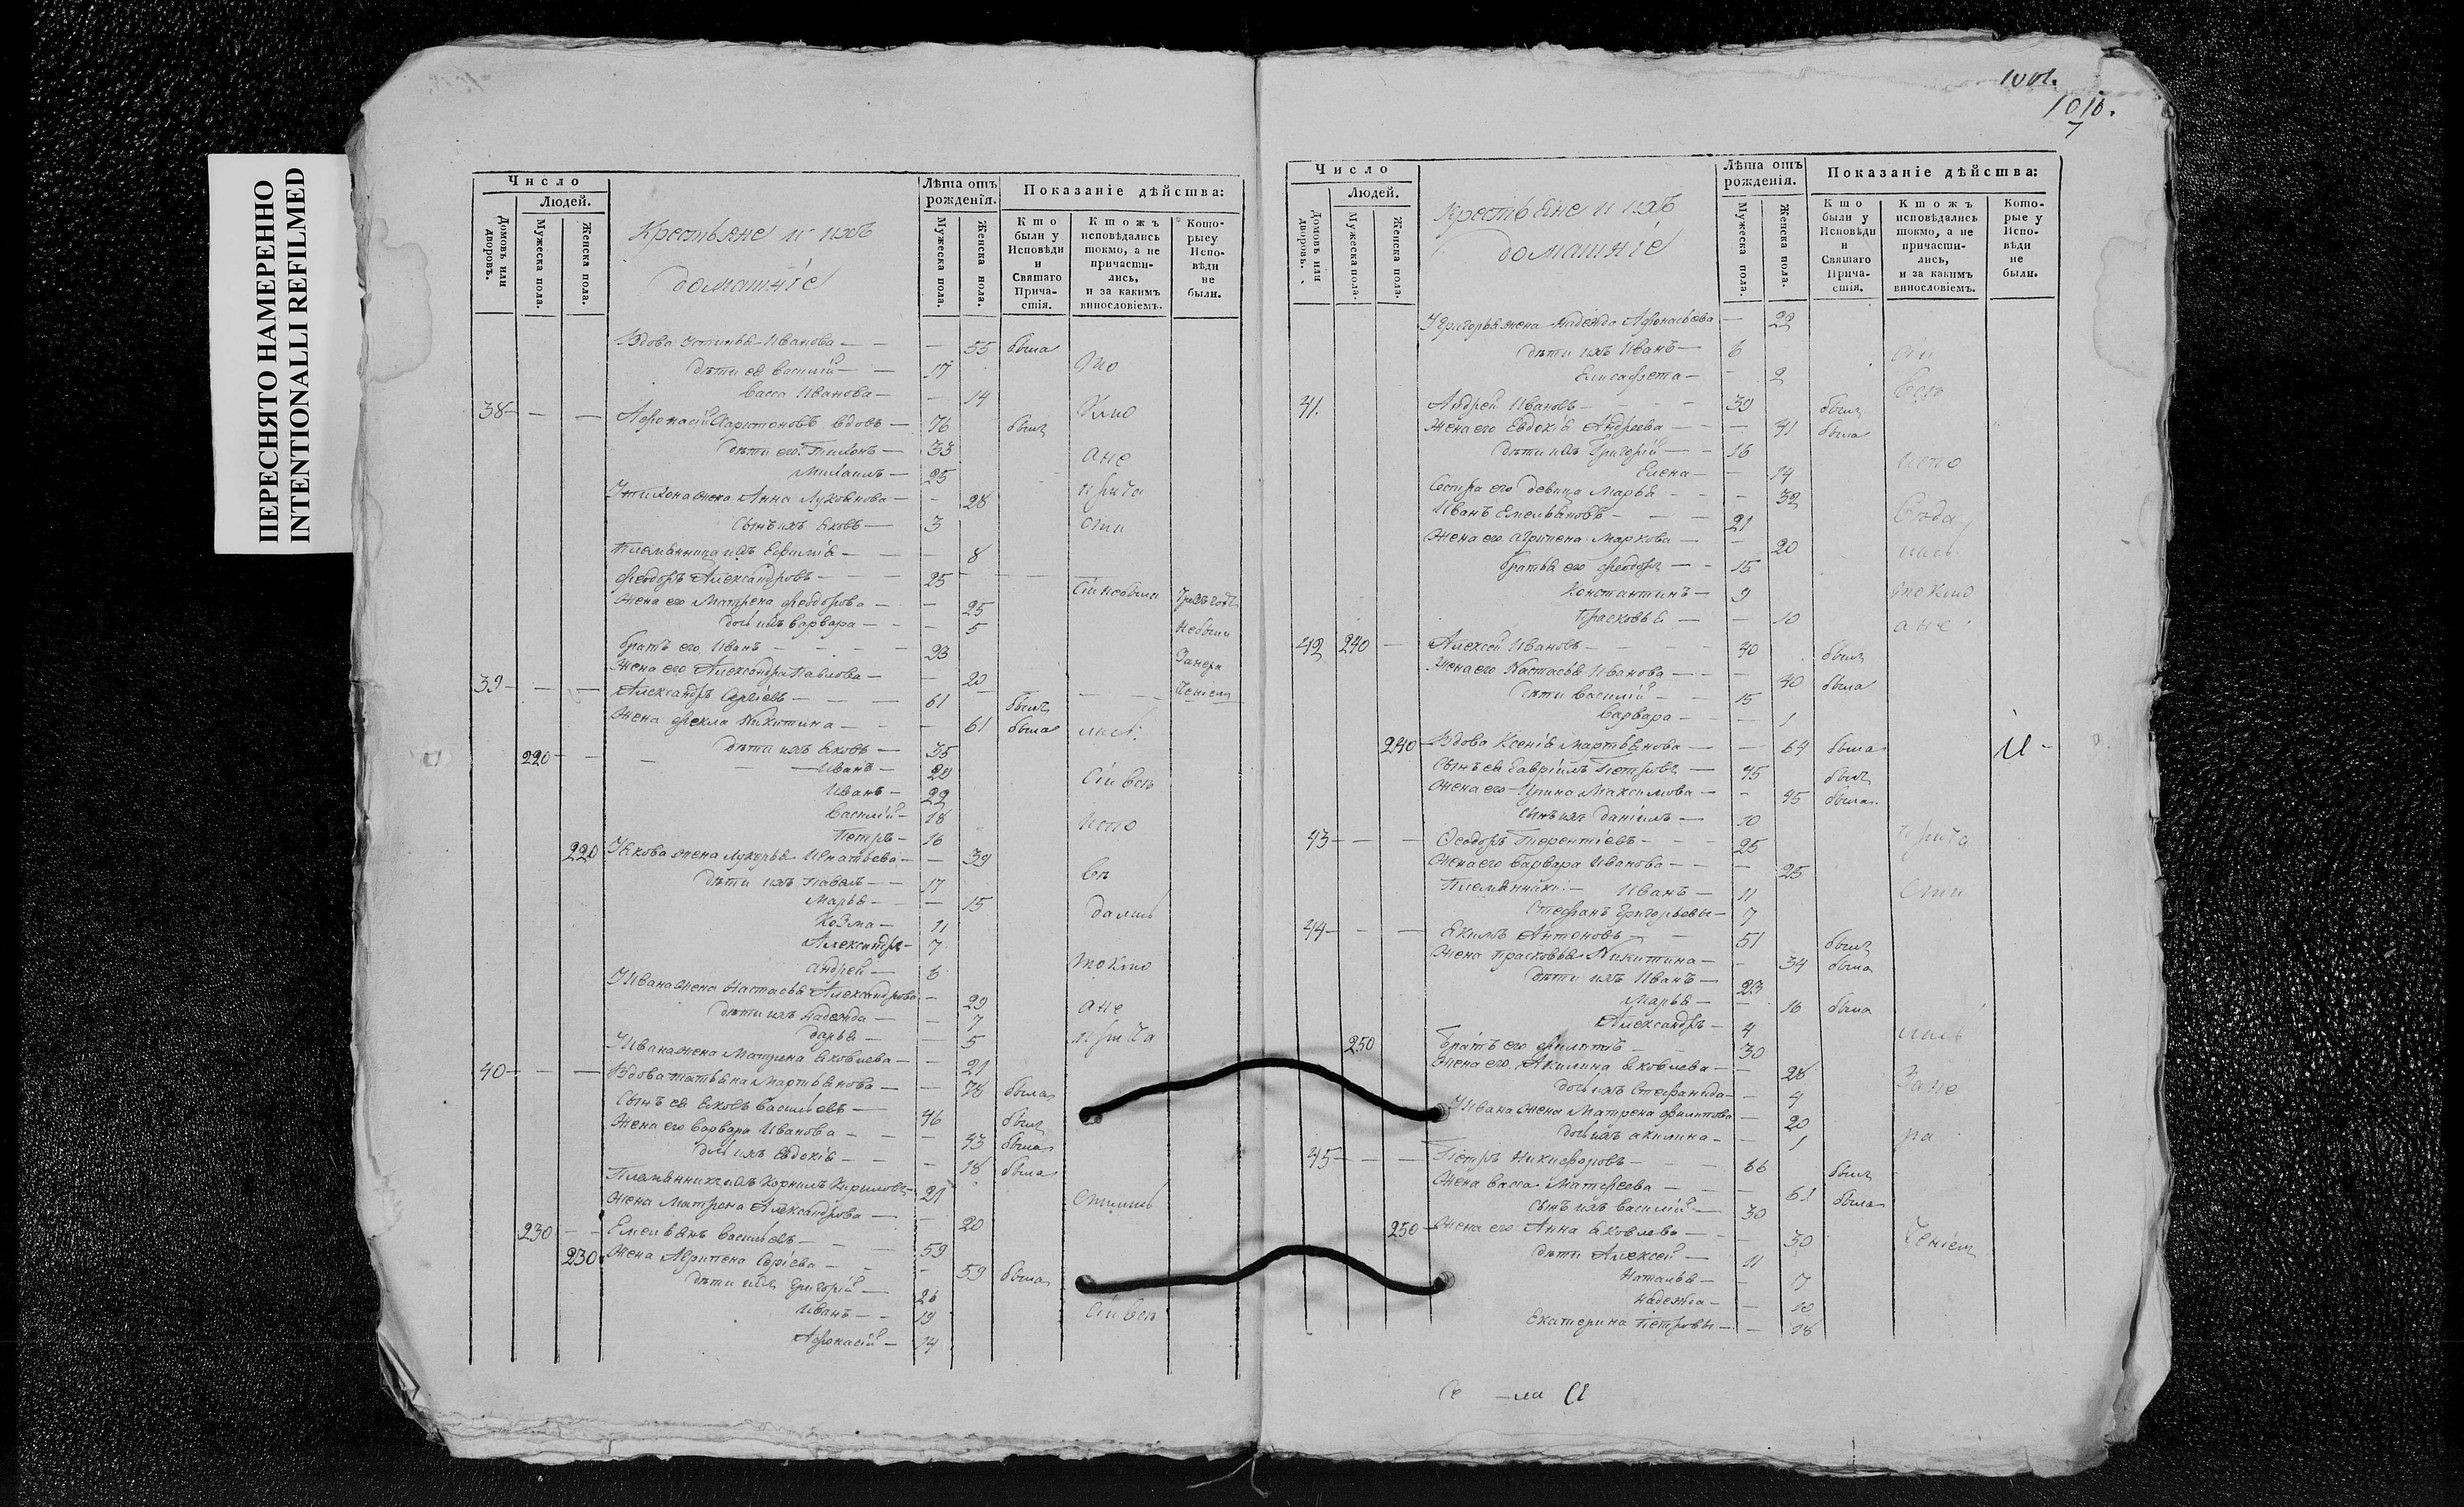 ПЕРЕСНЯТО НАМЕРЕННО
INTENTIONALLI REFILMED
Число
Людей.
Домовъ или дворовъ.
Мужеска пола.
Женска пола.
Крестьяне и ихъ
домашніе
Лѣта отъ рожденія.
Мужеска пола.
Женска пола.
Показаніе дѣйства:
Кто были у Исповѣди и Святаго Причастія.
Ктожъ исповѣдались токмо, а не причастились, и за какимъ винословіемъ.
Которыеу Исповѣди не были.
Вдова Устинья Иванова — — — 55 была
дѣти ея Василій — — 17
Васса Иванова — — 14
38 — — — Афонасій Харитоновъ вдовъ — 76 былъ
дѣти его: Тихонъ — 33
Михаилъ — 25 а не
У Тихона жена Анна Лукоянова — — 28 прича
Сынъ ихъ Яковъ — 3
Племянница ихъ Ефимія — — — 8
Феодоръ Александровъ — — — 25
Жена его Матрена Феодорова — — 25
дочь ихъ Варвара — — — 5 Небыли
братъ его Иванъ — — — — 23
Жена его Александра Павлова — — 20
39 — — — Александръ Сергіевъ — — — 61 былъ
Жена Фекла Никитина — — — 61 была лись
220 — — дѣти ихъ Яковъ — 35
Иванъ — 29
Иванъ — 22
Василій — 18 Испо
Петръ — 16
220 У Якова жена Лукерья Игнатьева — — 39
дѣти ихъ Павелъ — — 17 вѣ
Марья — — — 15 дались
Козма — 11
Александръ — 7
Андрей — 6 токмо
У Ивана жена Настасья Александрова — 29
дѣти ихъ Надежда — — 7 а не
Дарья — — 5 прича
У Ивана жена Матрена Яковлева — — 21
40 — — — Вдова Татьяна Мартьянова — — 78 была
Сынъ ея Яковъ Васильевъ — — 46 былъ
Жена его Варвара Иванова — — — 43 была
дочь ихъ Евдокія — — — 18 была
Племянникъ ихъ Корнилъ Кириловъ — 21
Жена Матрена Александрова — — 20 стились
230 — — Емельянъ Васильевъ — — — 59
230 Жена Агрипена Сергіева — — — 59 была
дѣти ихъ Григорій — 26
Иванъ — — 19
Афонасій — 14
1001.
1010.
7
Число
Людей.
Домовъ или дворовъ.
Мужеска пола.
Женска пола.
Крестьяне и ихъ
домашніе
Лѣта отъ рожденія.
Мужеска пола.
Женска пола.
Показаніе дѣйства:
Кто были у Исповѣди и Святаго Причастія.
Ктожъ исповѣдались токмо, а не причастились, и за какимъ винословіемъ.
Которые у Исповѣди не были.
У Григорья жена Надежда Афонасьева — 22
дѣти ихъ Иванъ — 6
Елисафета — — 2
41. Андрей Ивановъ — — — 39 былъ
Жена его Евдокія Андреева — — — 41 была
дѣти ихъ Григорій — — 16
Елена — — 14 испо
Сестра его девица Марья — — — 32
Иванъ Емельяновъ — — — 21
Жена его Агрипена Маркова — — 20 лись
братья его Феодоръ — — 15
Константинъ — 9 токмо
Прасковья — — 10 а не
42 240 — Алексей Ивановъ — — — 40 былъ
Жена его Настасья Иванова — — — 40 была
дѣти Василій — — 15
Варвара — — — 1
240 — Вдова Ксенія Мартьянова — — 64 была
Сынъ ея Гавріилъ Петровъ — 45 былъ
Жена его Ирина Максимова — — 45 была
Сынъ ихъ Даніилъ — 10
43 — — — Феодоръ Терентіевъ — — — 25 прича
Жена его Варвара Иванова — — — 25
Племянники: — Иванъ — 11 сти
Стефанъ Григорьевы — 7
44 — — — Якимъ Антоновъ — — 51 былъ
Жена Прасковья Никитина — — 34 была
дѣти ихъ Иванъ — 23
Марья — — 16 была
Александръ — 4 лись
250 Братъ его Филиппъ — — 30
Жена его Акилина Яковлева — — 28
дочь ихъ Стефанида — — 4
У Ивана жена Матрена Филипова — 20
дочь ихъ Акилина — — 1
45 — — — Петръ Никифоровъ — — — 66 былъ
Жена Васса Матфеева — — — 61 была
Сынъ ихъ Василій — 30
250 — Жена его Анна Яковлева — — — 30
дѣти Алексей — 11
Наталья — — 7
Надежда — — 10
Екатерина Петровы — — 18